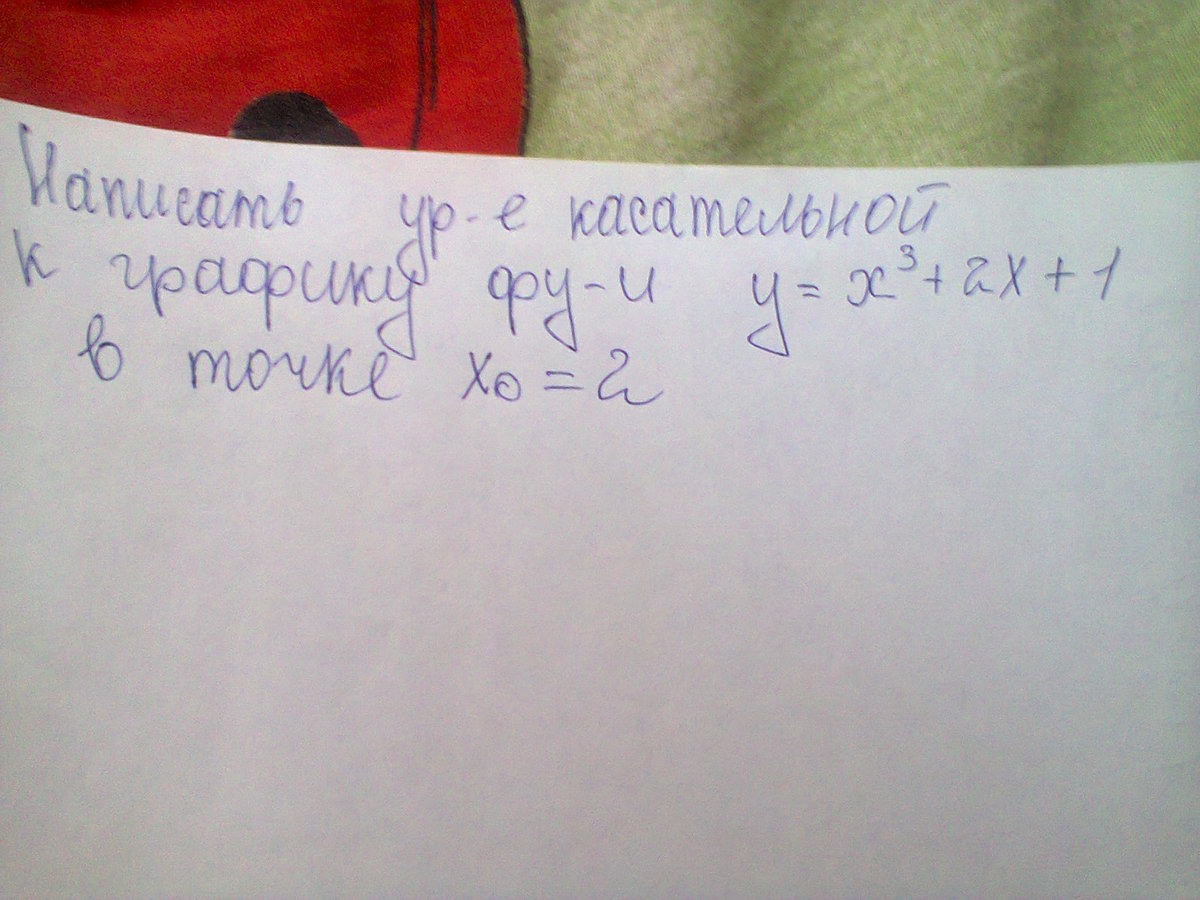 Написать ур-е касательной
к графику фу-и y = x³ + 2x + 1
в точке x₀ = 2